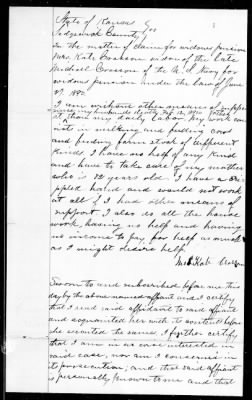 State of Kansas } ss
Sedgwick County
In the matter of claim for widows pension
Mrs. Kate Crosson widow of the late
Michael Crosson of the U.S. Navy for
widows pension under the law of June
27 1890
I am without other means of support
than my daily labor my work con
sists in milking and feeding cows
and feeding farm stock of different
kinds, I have no help of any kind
and have to take care of my mother
who is 82 years old I have a cri
ppled hand and would not work
at all if I had other means of
support I also do all the house
work, having no help and having
no income to pay for help as much
as I might desire help
Mrs Kate Crosson
Sworn to and subscribed before me this
day by the above named affiant and I certify
that I read said affidavit to said affiant
and acquainted her with its contents before
she executed the same, I further certify
that I am in no wise interested in
said case, nor am I concerned in
its prosecution; and that said affiant
is personally known to me and that